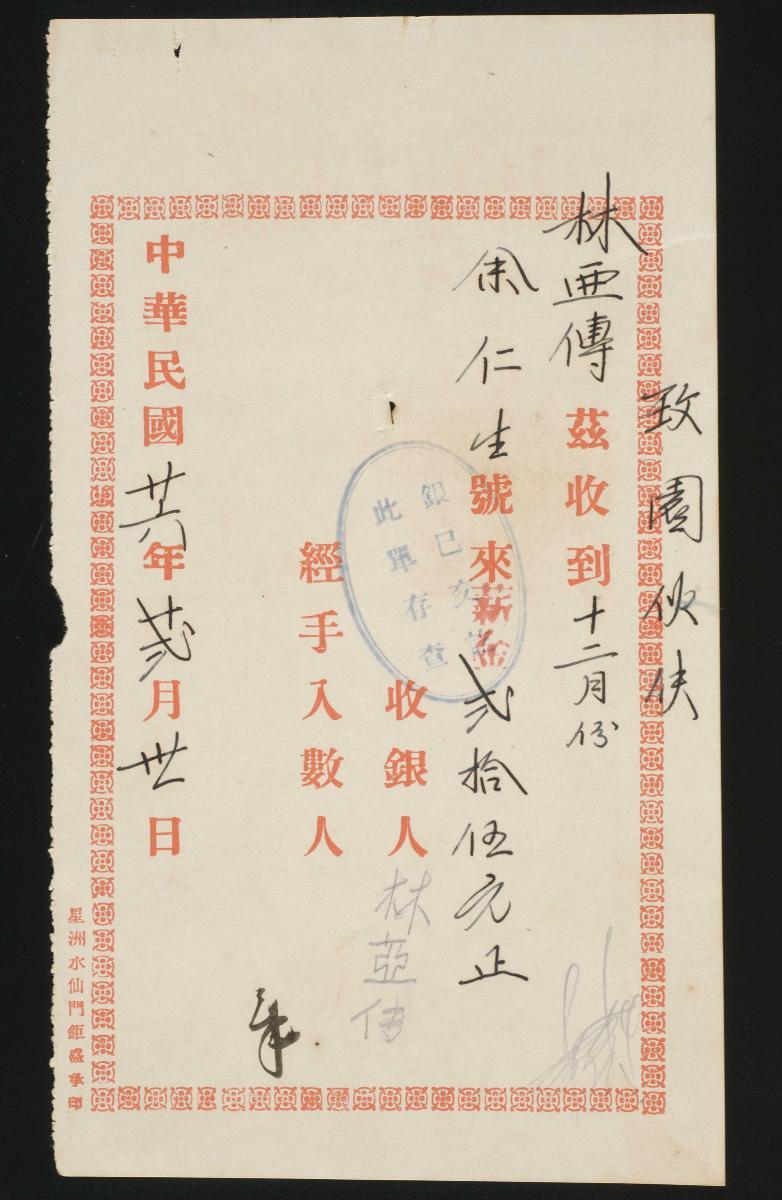 致園伙伕
林亜傳茲收到十二月份
余仁生號來薪金弍拾伍元正
銀已交訖
此單存查
收銀人林亞傳
經手入數人
中華民國廿六年弍月卅日
星洲水仙門鉅盛承印